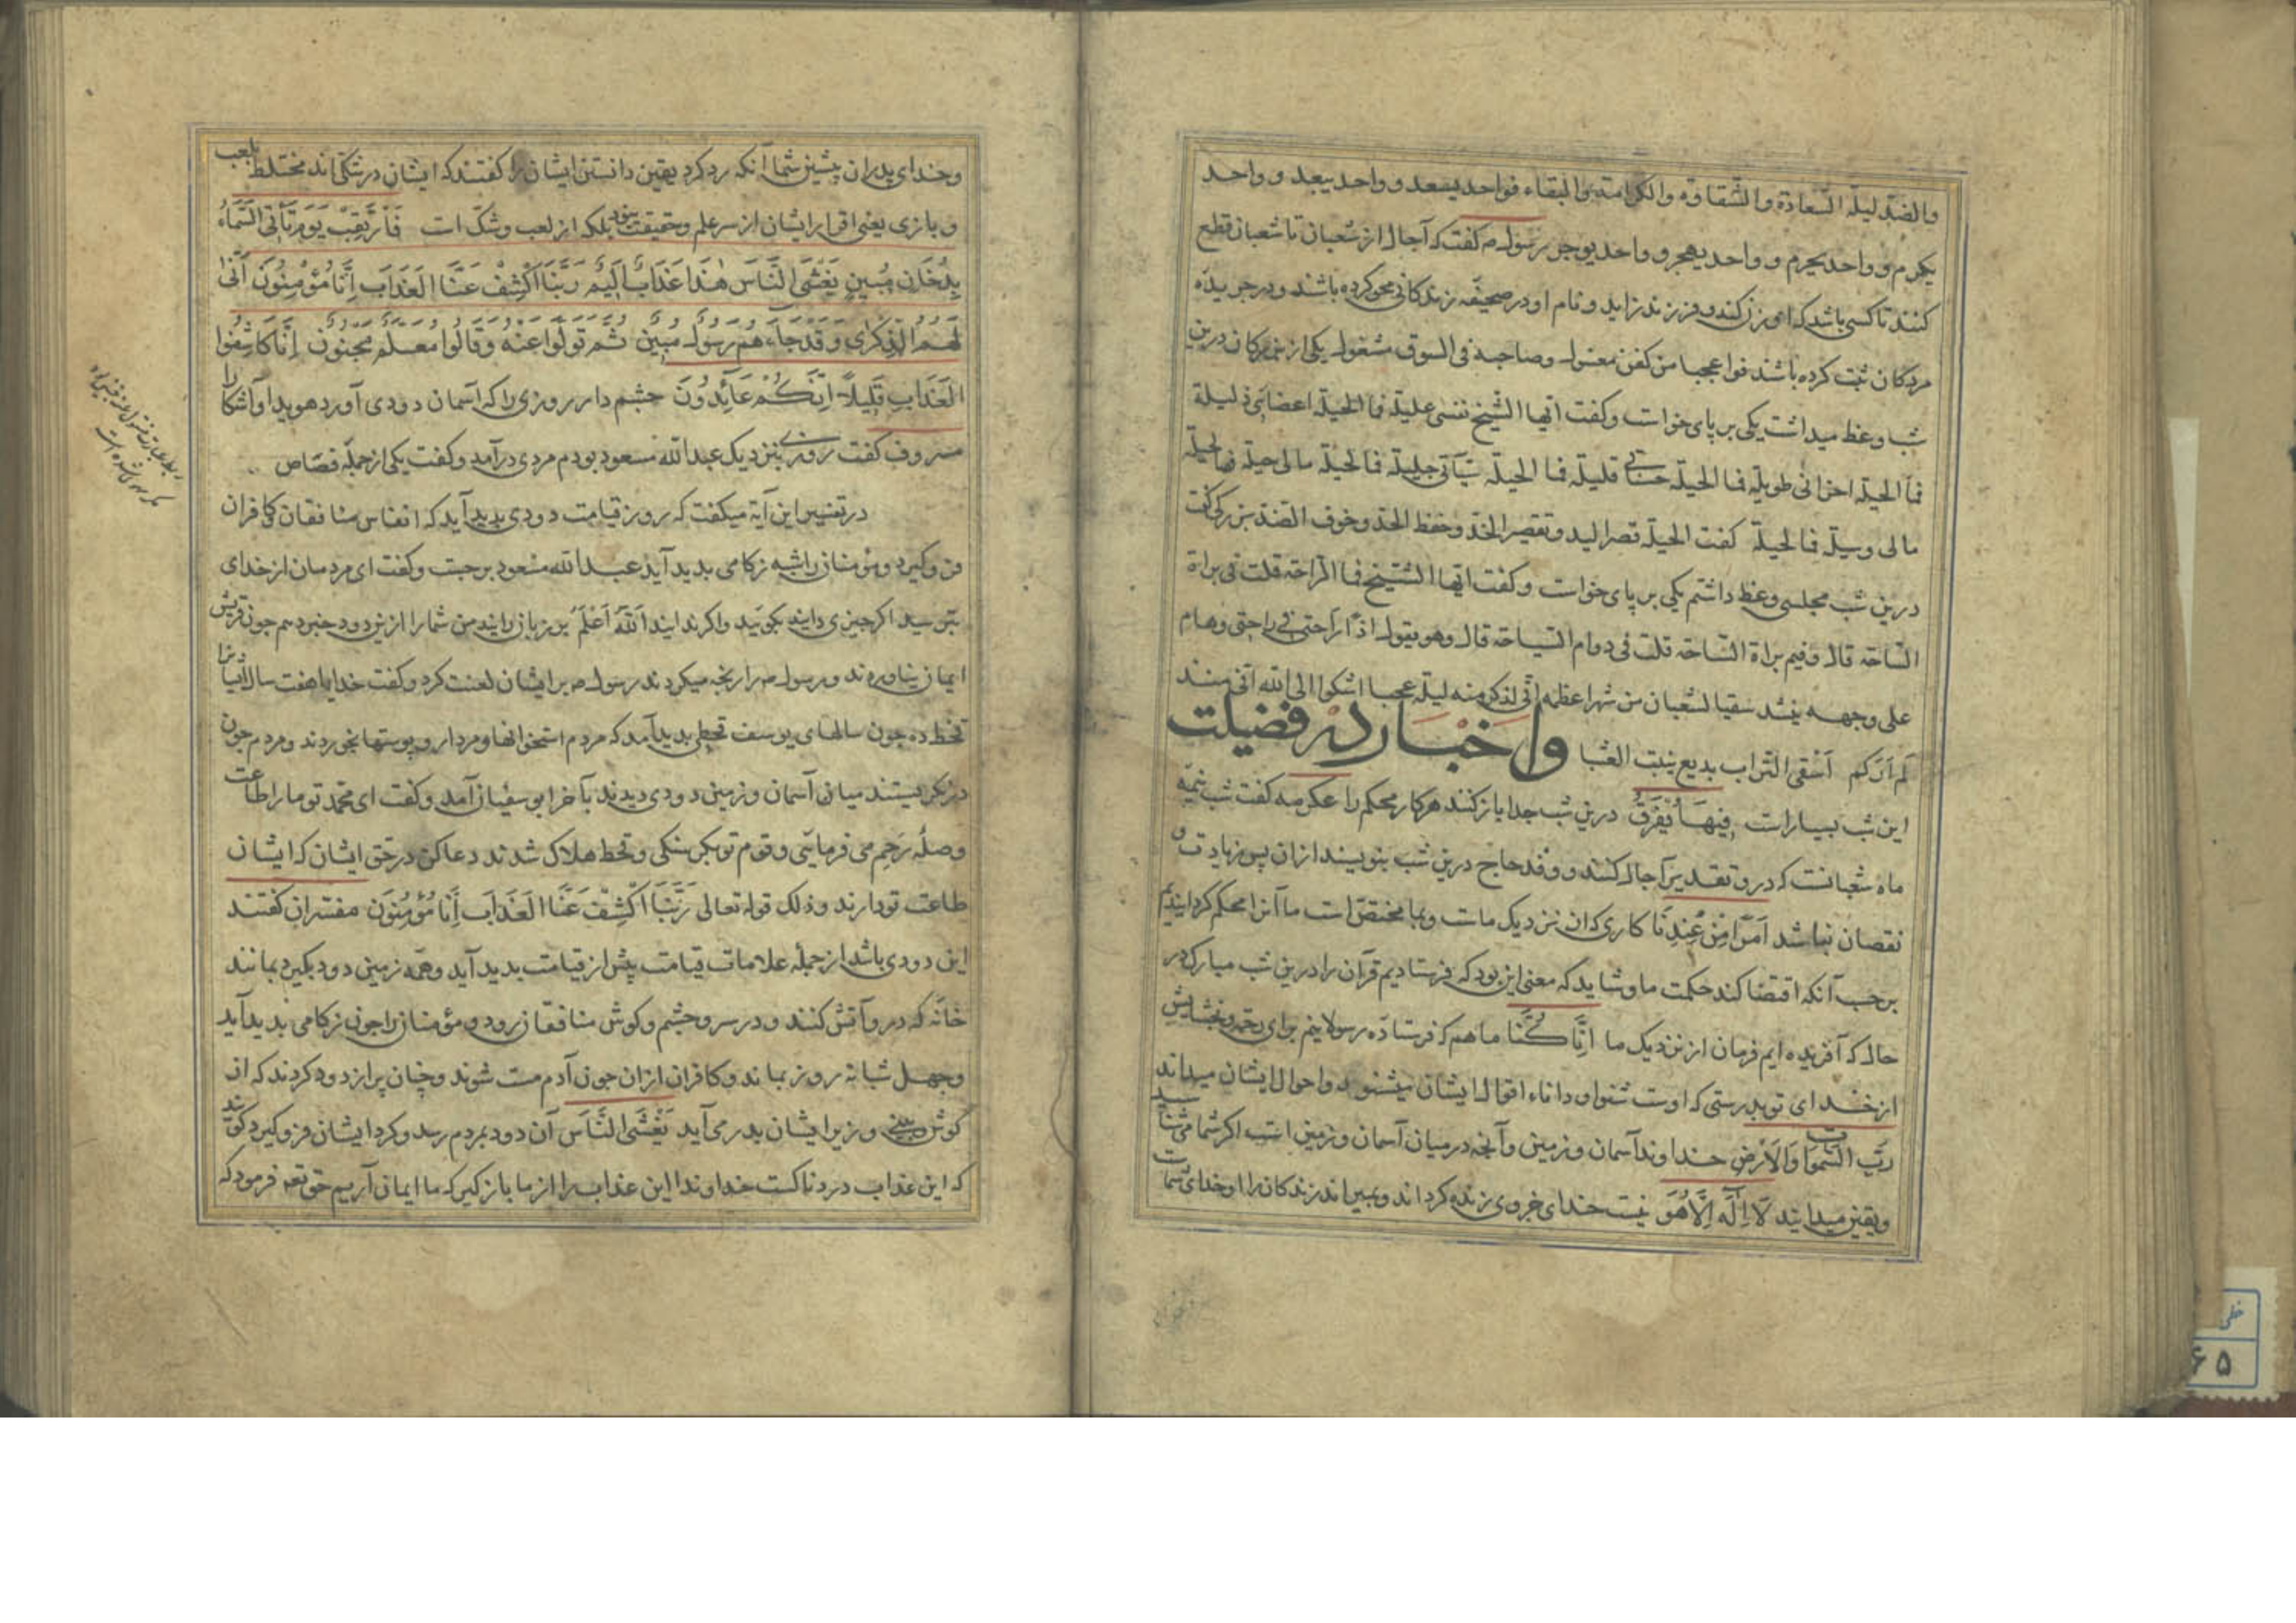 والضد لیلة السعادة والشقاوة والکرامة والبقاء فواحد یسعد وواحد یبعد وواحد
یکرم وواحد یحرم وواحد یهجر وواحد یوجر رسول ص کفت که آجال از شعبان تا شعبان قطع
کنند تا کسی باشد که او زن کند و فرزند زاید و نام او در صحیفه زندکانی محو کرده باشند و در جریده
مردکان ثبت کرده باشند فواعجبا من کفن مغسول وصاحبه فی السوق مشغول یکی از بزرکان درین
شب وعظ میداشت یکی بر پای خواست وکفت ایها الشیخ فما الحیلة اعضائی ذلیلة
فما الحیلة احزانی طویلة فما الحیلة حسناتی قلیلة فما الحیلة سیّآتی جلیلة فما الحیلة مالی حیلة فما الحیلة
مالی وسیلة فما الحیلة کفت الحیلة قصر الید وتقصیر الخد وحفظ الحد وخوف الضد بزرکی کفت
درین شب مجلسی وعظ داشتم یکی بر پای خواست وکفت ایها الشیخ فما الراحة قلت فی براة
الساحة قال وفیم براة الساحة قلت فی دوام السیاحة قال وهو یقول اذًا راحتی فی راحتی وهام
علی وجهه ینشد سقیا لشعبان من شهر اعظمه انی لذکر منه لیلة عجبا اشکوا الی الله انی منذ
لم ارکم اسقی التراب بدیع ینبت العشبا واخبار در فضیلت
این شب بسیار است فِیهَا یُفْرَقُ درین شب جدا باز کنند هر کار محکم را عکرمه کفت شب نیمه
ماه شعبانست که درو تقدیر آجال کنند ووفد حاج درین شب بنویسند از ان پس زیادت و
نقصان نباشد اَمْرًا مِنْ عِنْدِنَا کاری که ان نزدیک ماست وبما مختصّ است ما آنرا محکم کردایندیم
بر حسب آنکه اقتضا کند حکمت ما وشاید که معنی این بود که فرستادیم قرآن را درین شب مبارک در
حال که آفریده ایم فرمان از نزدیک ما اِنَّا کُنَّا ما هم که فرستاده رسولاینم برای رحمة وبخشایش
از خدای تو بدرستی که اوست شنوا ودانا اقوال ایشان میشنود واحوال ایشان میداند
رَبِّ السَّمَوَاتِ وَالاَرْضِ خداوند آسمان وزمین وآنچه در میان آسمان وزمین است اکر شما می شناسید
ویقین میدانید لَا اِلَهَ اِلَّا هُوَ نیست خدای جز وی زنده کرداند وبمیراند زندکان را او خدای شماست
وخدای پدران پیشین شما آنکه رد کرد یقین دانستن ایشان را کفتند که ایشان در شکی اند مختلط بلعب
وبازی یعنی اقرار ایشان از سر علم وحقیقت نبود بلکه از لعب وشکّ است فَارْتَقِبْ یَوْمَ تَأْتِی السَّمَاءُ
بِدُخَانٍ مُبِینٍ یَغْشَی النَّاسَ هٰذَا عَذَابٌ اَلِیمٌ رَبَّنَا اکْشِفْ عَنَّا الْعَذَابَ اِنَّا مُؤْمِنُونَ اَنّٰی
لَهُمُ الذِّکْرٰی وَقَدْ جَاءَهُمْ رَسُولٌ مُبِینٌ ثُمَّ تَوَلَّوْا عَنْهُ وَقَالُوا مُعَلَّمٌ مَجْنُونٌ اِنَّا کَاشِفُوا
الْعَذَابِ قَلِیلًا اِنَّکُمْ عَائِدُونَ چشم دار روزی را که آسمان دودی آورد هویدا وآشکارا
مسروف کفت روزی بنزدیک عبدالله مسعود بودم مردی درآمد وکفت یکی از جمله قصّاص
در تفسیر این آیة میکفت که روز قیامت دودی بدید آید که انفاس منافقان وکافران
فرو کیرد ومؤمنان را شبه زکامی بدید آید عبدالله مسعود برجست وکفت ای مردمان از خدای
بترسید اکر چیزی دانید بکویید واکر ندانید اَللهُ اَعْلَمُ بر زبان رانید من شما را ازین دود خبر دهم چون قریش
ایمان نیاوردند ورسول ص را رنجه میکردند رسول ص بر ایشان لعنت کرد وکفت خدایا هفت سال اینانرا
قحط ده چون سالهای یوسف قحطی بدید آمد که مردم استخوانها ومردار وپوستها بخوردند ومردم چون
درنکریستند میان آسمان وزمین دودی دیدند بآخر ابو سفیان آمد وکفت ای محمد تو ما را طاعت
وصله رحم می فرمایی وقوم تو بکرسنکی وقحط هلاک شدند دعا کن در حق ایشان که ایشان
طاعت تو دارند وذلک قوله تعالی رَبَّنَا اکْشِفْ عَنَّا الْعَذَابَ اِنَّا مُؤْمِنُونَ مفسّران کفتند
این دودی باشد از جمله علامات قیامت پیش از قیامت بدید آید وهمه زمین دود بکیرد بمانند
خانه که درو آتش کنند ودر سر وچشم وکوش منافقان رود ومؤمنان را چون زکامی بدید آید
وچهل شبانه روز بماند وکافران ازان چون آدم مست شوند وچنان پر از دود کردند که از
کوش وبینی وزیر ایشان بدر می آید یَغْشَی النَّاسَ آن دود بمردم رسد وکرد ایشان فرو کیرد کویند
که این عذاب دردناکست خداوندا این عذاب را از ما باز کیر که ما ایمان آریم حق تعه فرمود که
خطی
۶۵